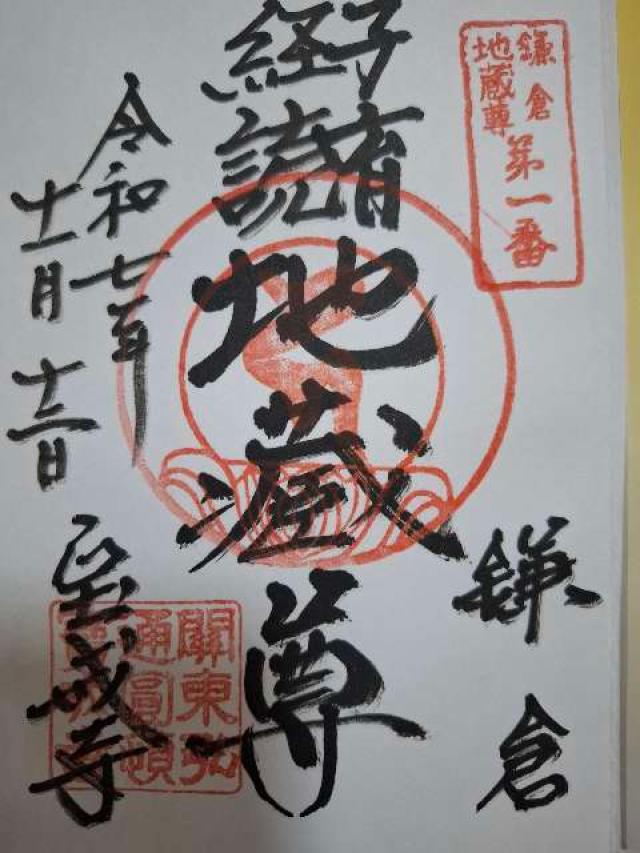 鎌倉
地蔵尊
第一番
鎌倉
子育
経読
地蔵尊
令和七年
十一月十三日
宝戒寺
關東弘
通圓頓